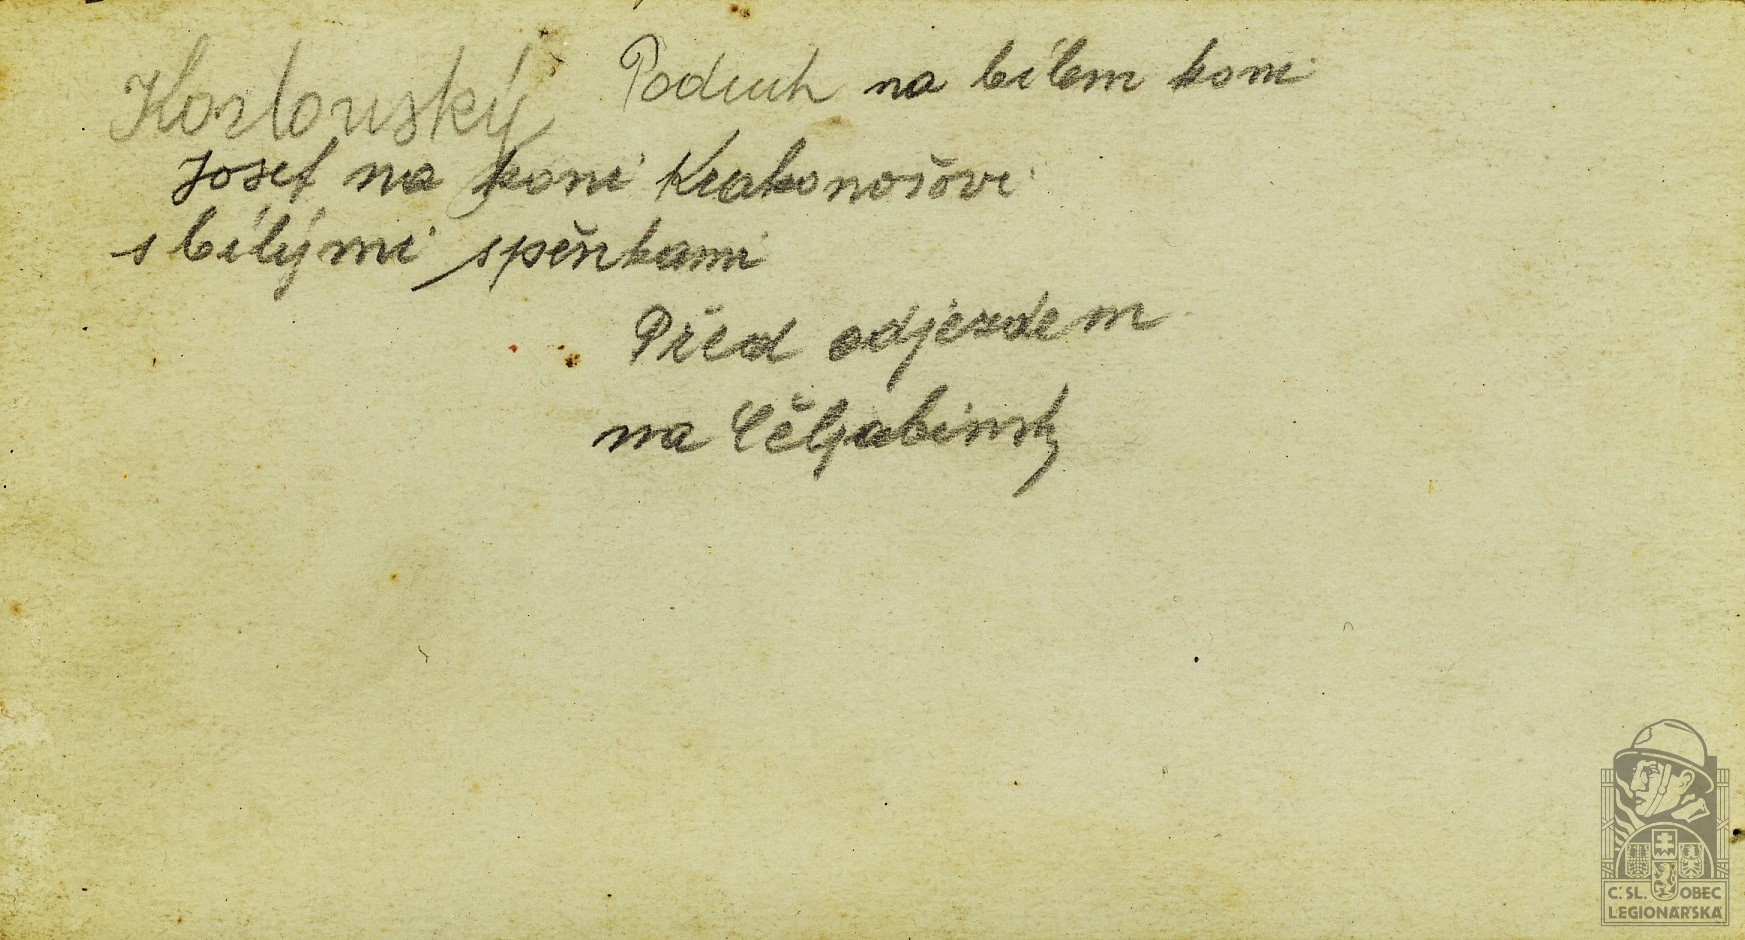 Kozlouský Podruh na bílem koni
Josef na koni Krakonošovi
s bílými spěnkami
Před odjezdem
na Čěljabinsk
Č.SL. OBEC
LEGIONÁŘSKÁ